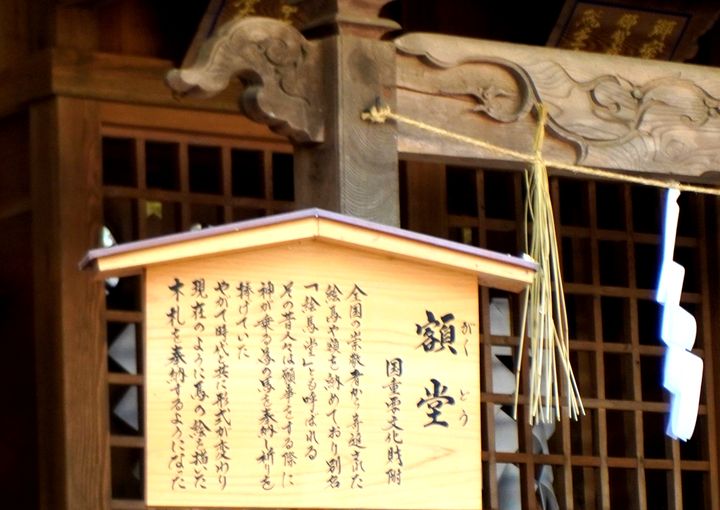 額堂
がくどう
国重要文化財附
全国の崇敬者から奇進された
絵馬や額を納めており別名
「絵馬堂」とも呼ばれる
その昔人々は願事をする際に
神が乗る為の馬を奉納し祈りを
捧げていた
やがて時代と共に形式が変わり
現在のように馬の絵を描いた
木札を奉納するようになった